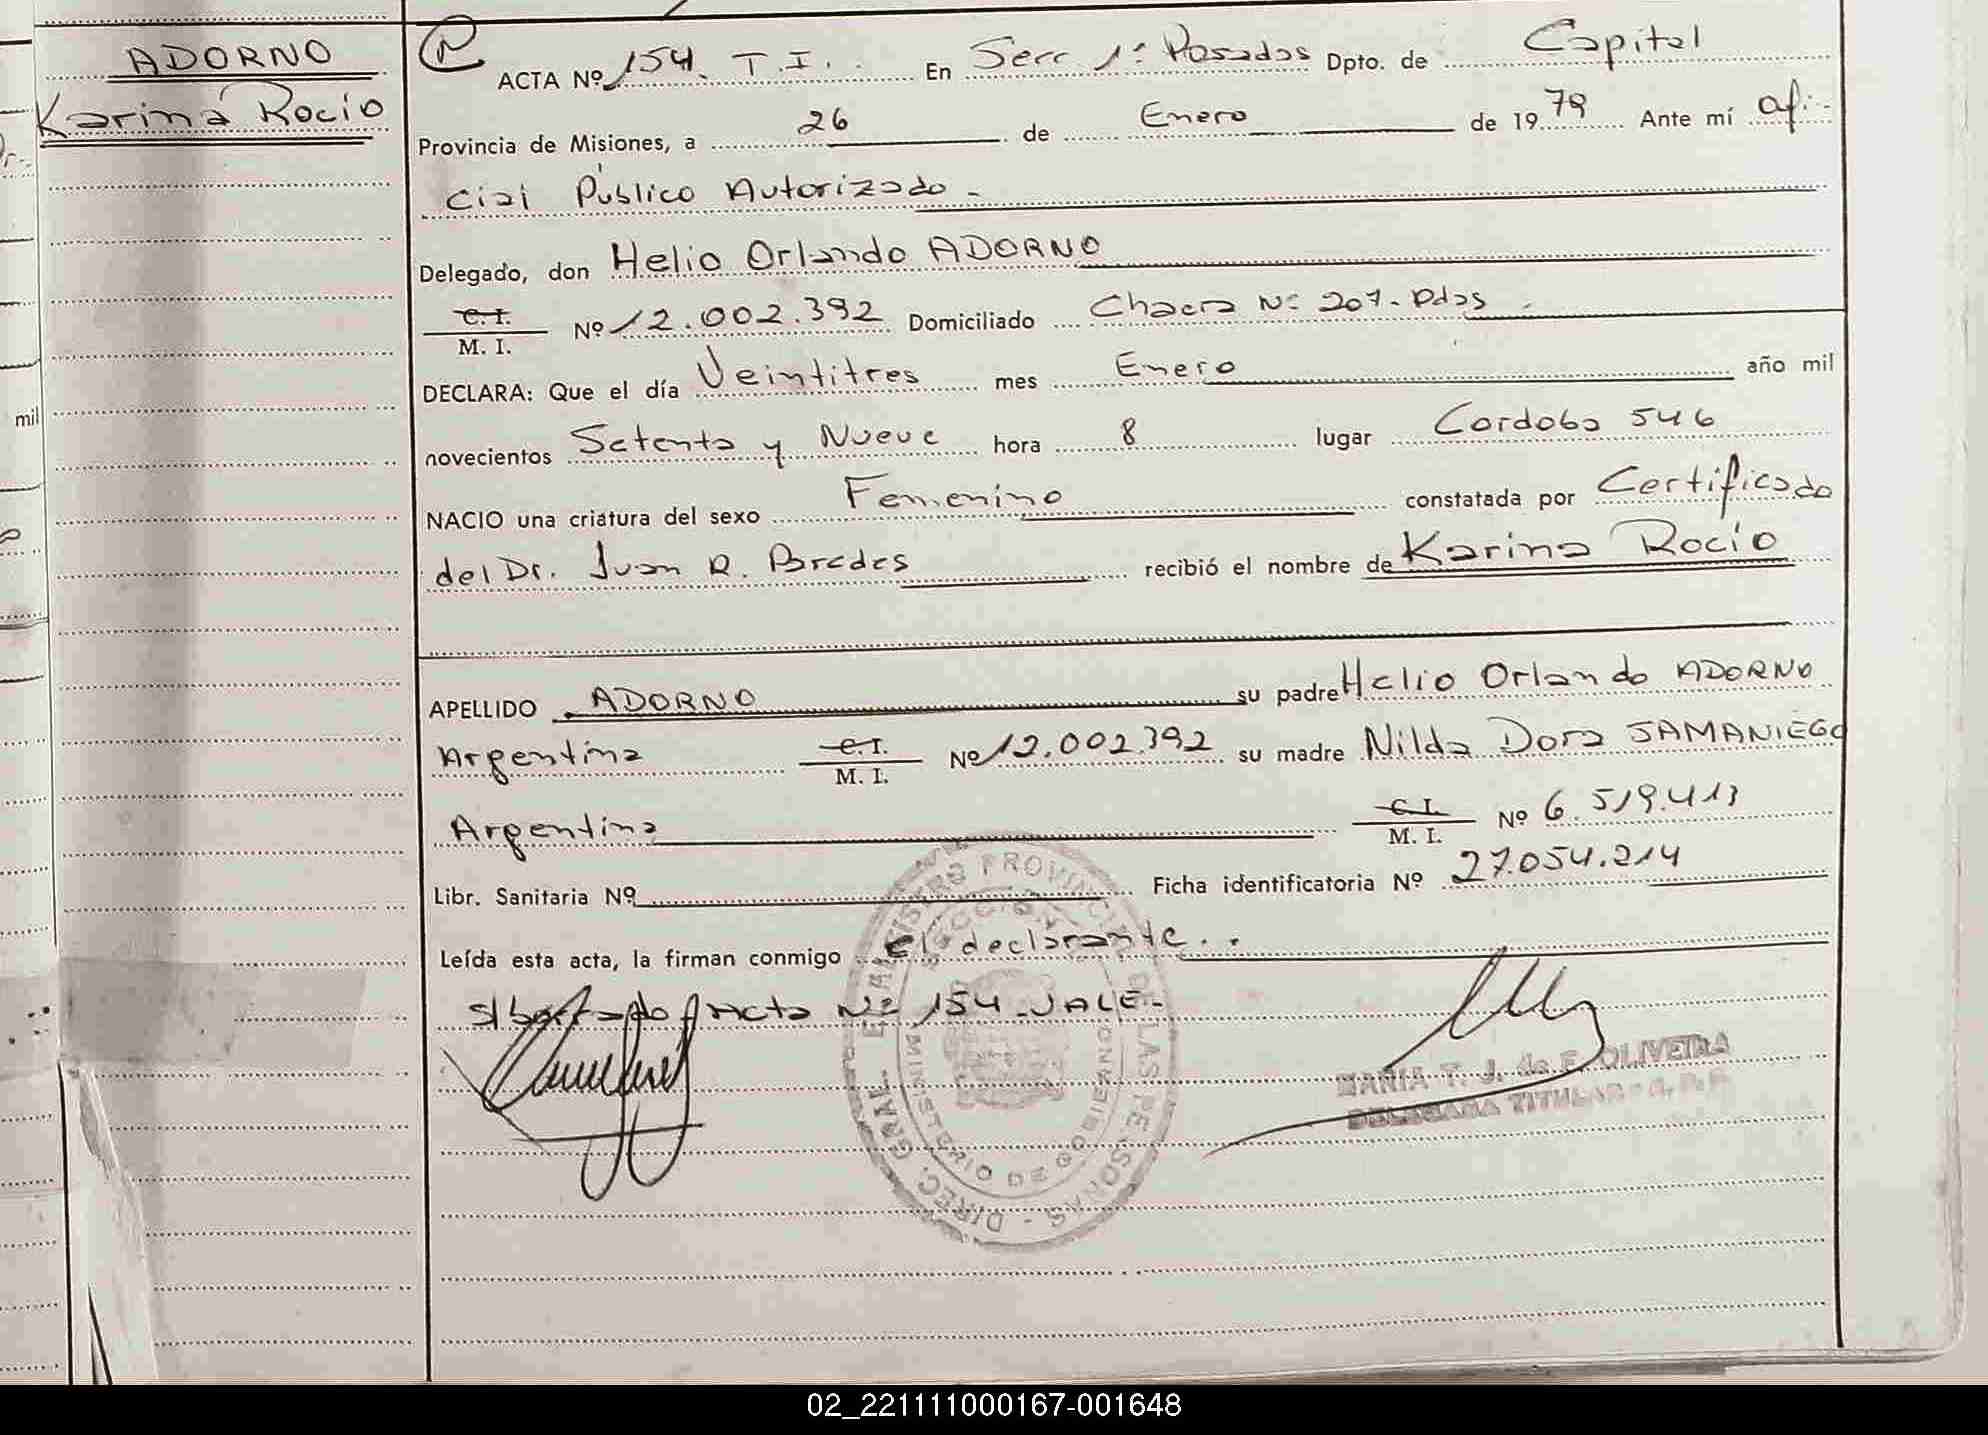 ADORNO
Karina Rocío
ACTA Nº 154. T.I. En Secc 1ª Posadas Dpto. de Capital
Provincia de Misiones, a 26 de Enero de 1979 Ante mí ofi-
cial Público Autorizado -
Delegado, don Helio Orlando ADORNO
C. I.
M. I. Nº 12.002.392 Domiciliado Chacra Nº 207- Pdas.
DECLARA: Que el día Veintitres mes Enero año mil
novecientos Setenta y Nueve hora 8 lugar Cordoba 546
NACIO una criatura del sexo Femenino constatada por Certificado
del Dr. Juan R. Paredes recibió el nombre de Karina Rocío
APELLIDO ADORNO su padre Helio Orlando ADORNO
Argentina C. I.
M. I. Nº 12.002.392 su madre Nilda Dora SAMANIEGO
Argentina C. I.
M. I. Nº 6.519.413
Libr. Sanitaria Nº Ficha identificatoria Nº 27.054.214
Leída esta acta, la firman conmigo el declarante..
S/borrado Acta Nº 154 VALE-
MARIA T. J. de F. OLIVEIRA
DELEGADA TITULAR
DIREC. GRAL. REGISTRO PROVINCIAL DE LAS PERSONAS -
MINISTERIO DE GOBIERNO
mil
02_221111000167-001648